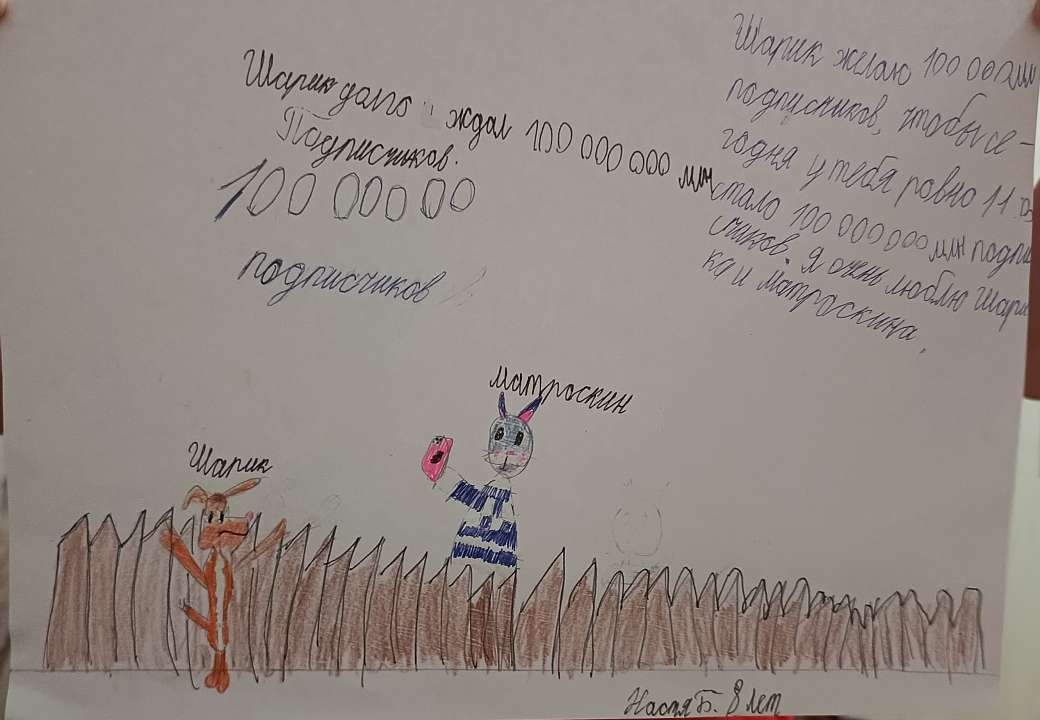 Шарик долго ждал 100 000 000 млн
Подписчиков.
100 000 00
подписчиков
Шарик желаю 100 000 млн
подписчиков, чтобы се-
годня у тебя ровно 11
стало 100 000 000 млн подпи
счиков. Я очень люблю Шари
ка и матроскина.
матроскин
Шарик
Настя Б. 8 лет